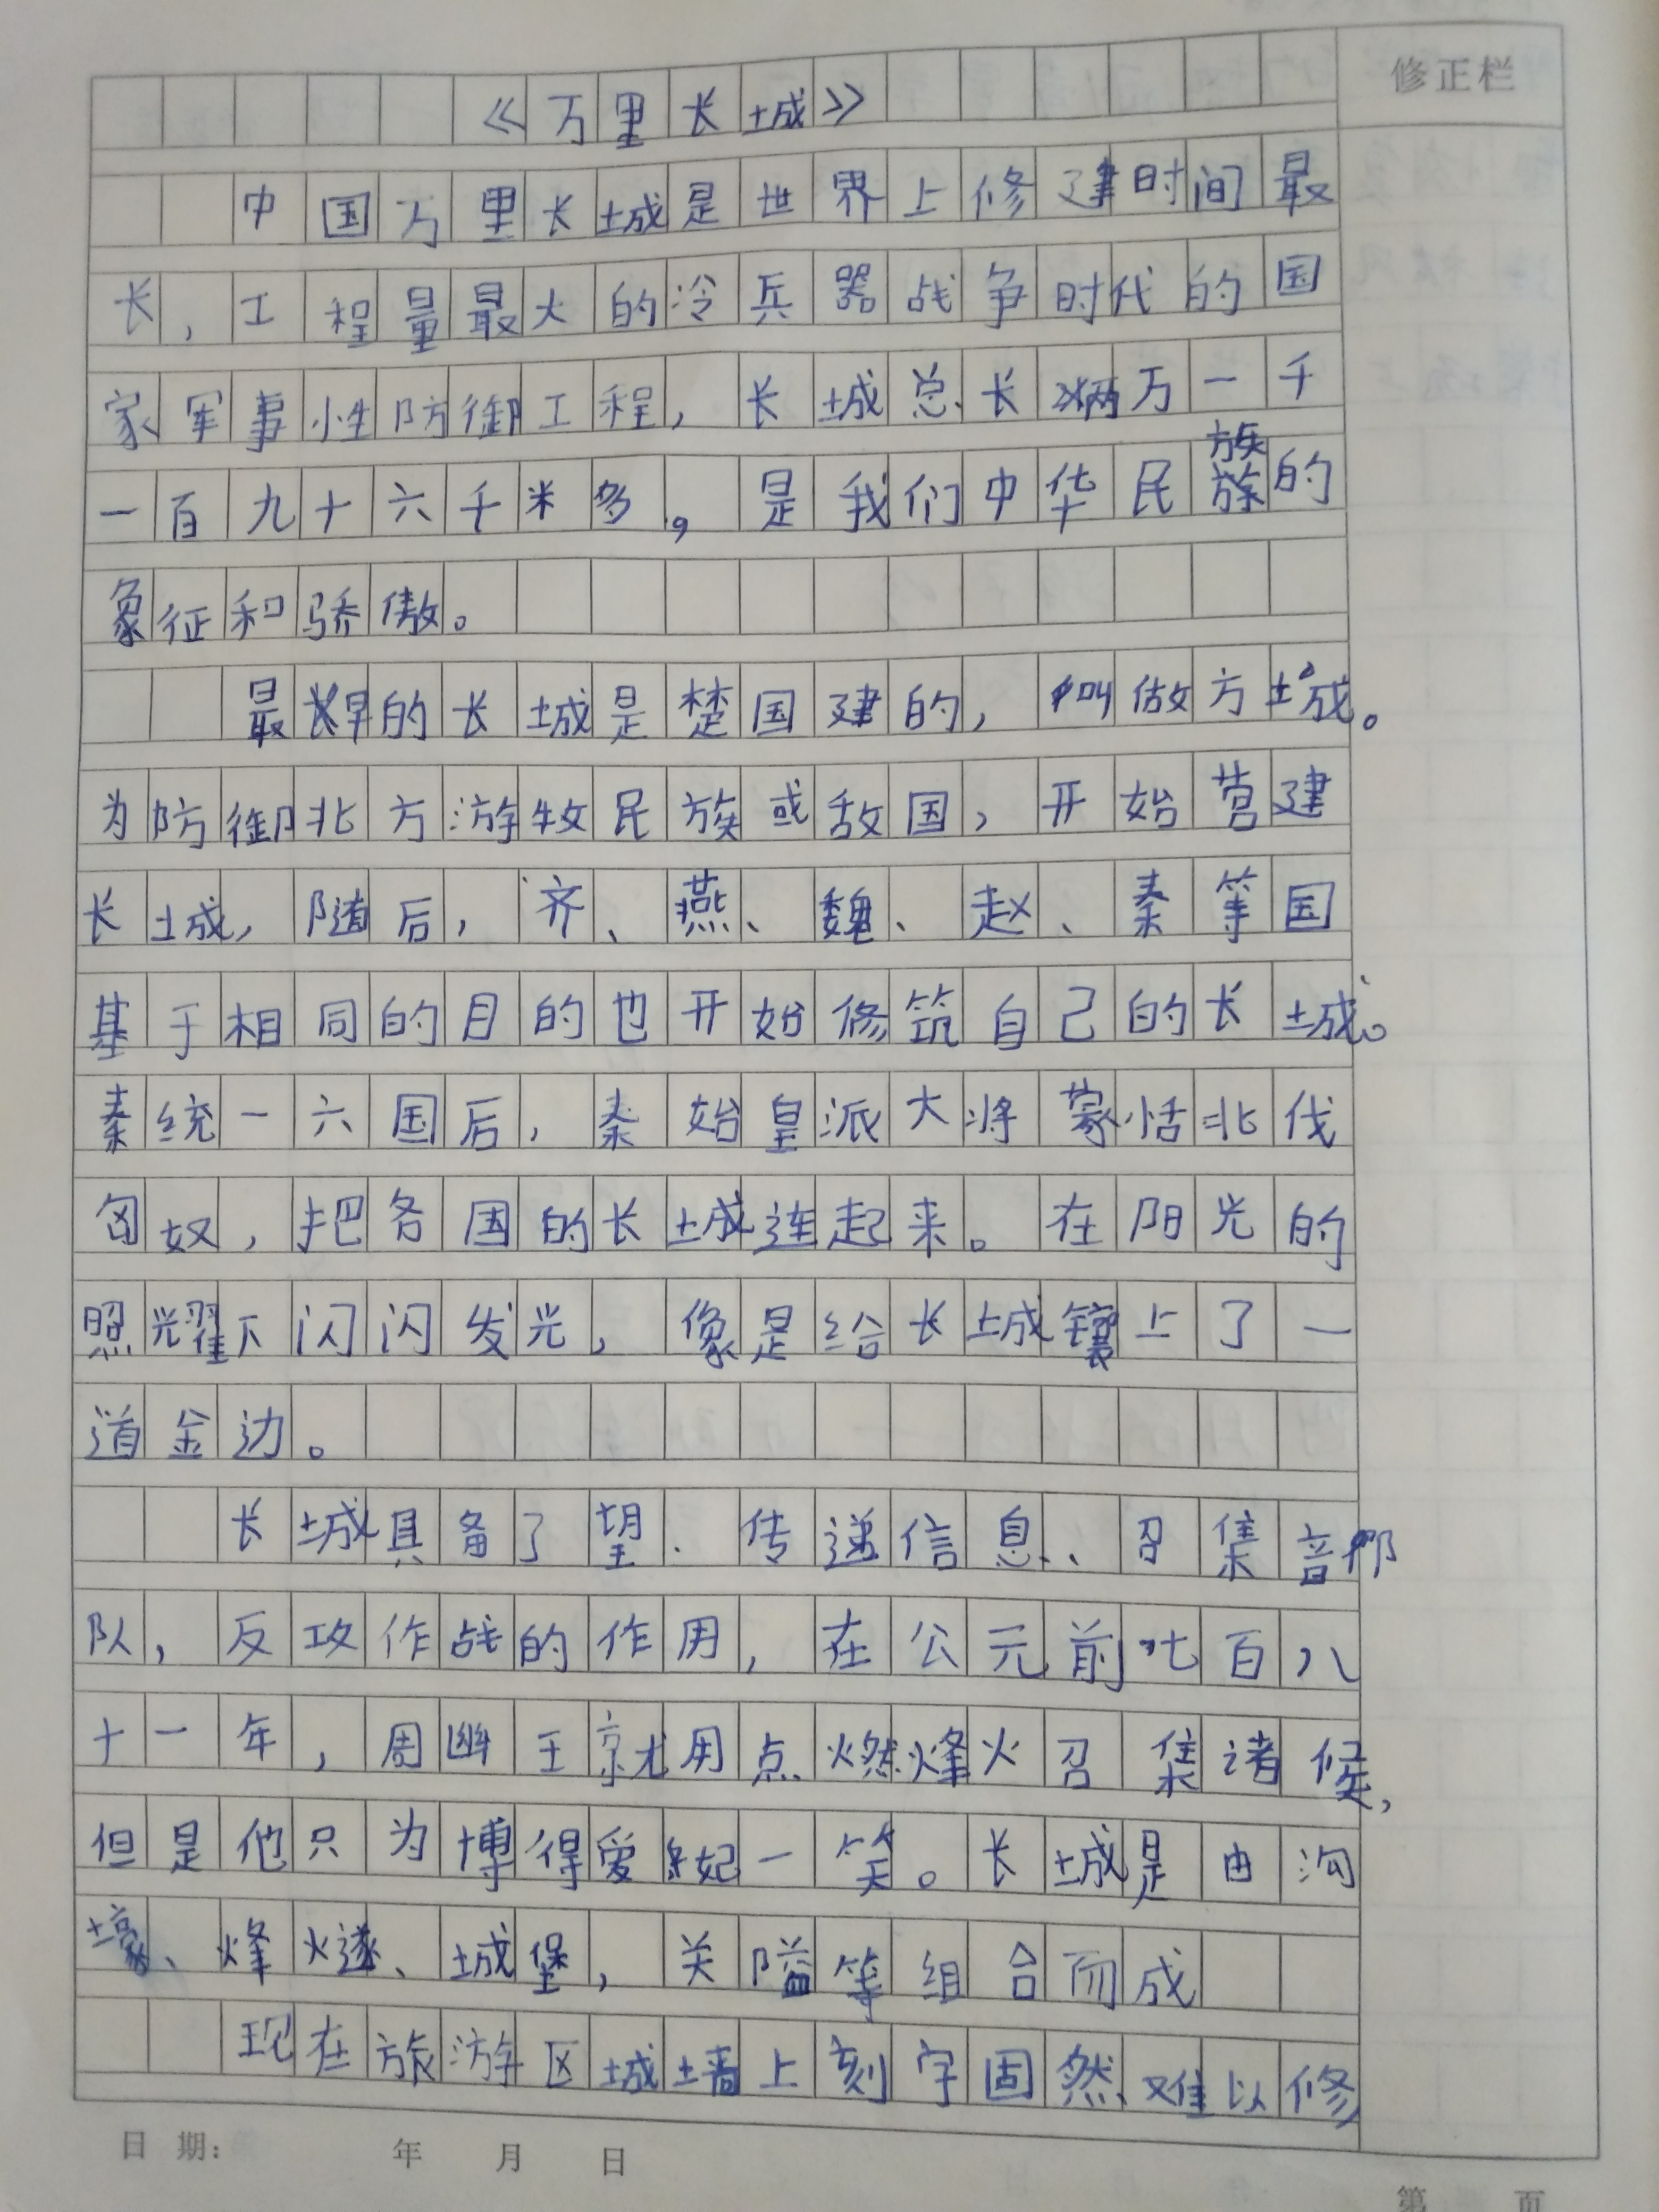 修正栏
《万里长城》
中国万里长城是世界上修建时间最
长，工程量最大的冷兵器战争时代的国
家军事性防御工程，长城总长两万一千
一百九十六千米多。是我们中华民族的
象征和骄傲。
最早的长城是楚国建的，叫做方城。
为防御北方游牧民族或敌国，开始营建
长城，随后，齐、燕、魏、赵、秦等国
基于相同的目的也开始修筑自己的长城。
秦统一六国后，秦始皇派大将蒙恬北伐
匈奴，把各国的长城连起来。在阳光的
照耀下闪闪发光，像是给长城镶上了一
道金边。
长城具备了望、传递信息、召集部
队，反攻作战的作用，在公元前七百八
十一年，周幽王就用点燃烽火召集诸候，
但是他只为博得爱妃一笑。长城是由沟
壕、烽燧、城堡，关隘等组合而成
现在旅游区城墙上刻字固然难以修
日期： 年 月 日
第 页